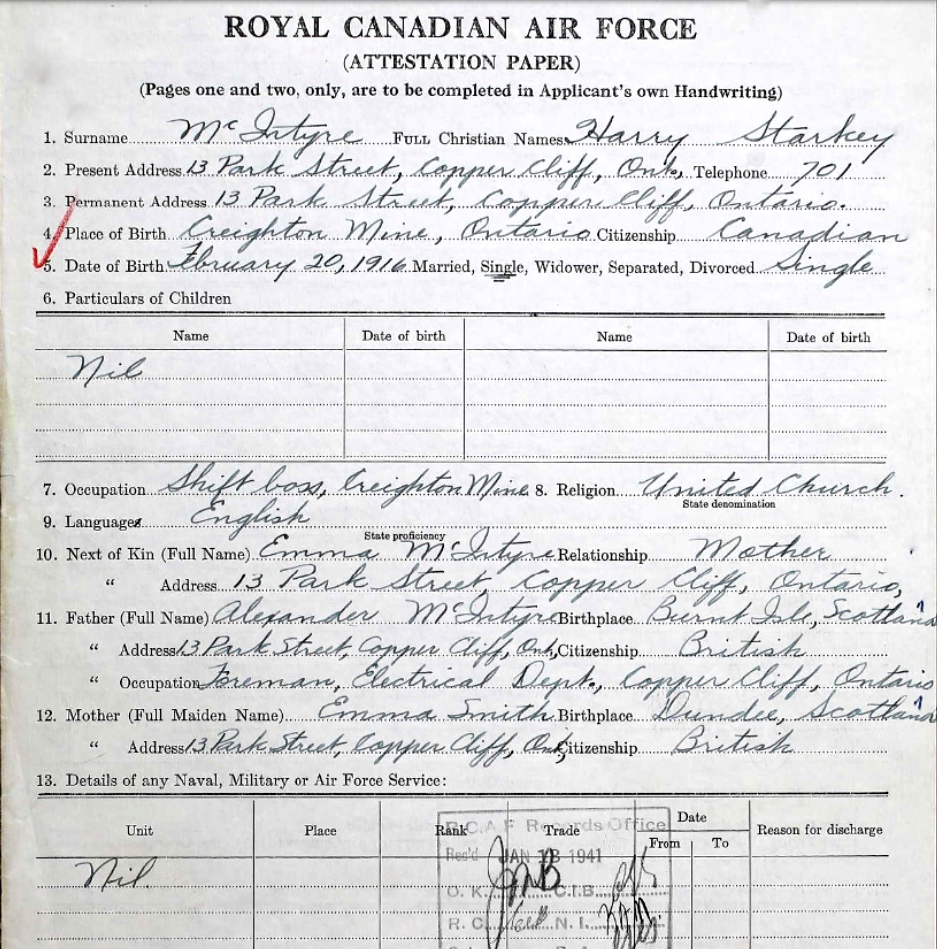 ROYAL CANADIAN AIR FORCE
(ATTESTATION PAPER)
(Pages one and two, only, are to be completed in Applicant's own Handwriting)
1. Surname McIntyre Full Christian Names Harry Starkey
2. Present Address 13 Park Street, Copper Cliff, Ont., Telephone 701
3. Permanent Address 13 Park Street, Copper Cliff, Ontario.
4. Place of Birth Creighton Mine, Ontario Citizenship Canadian
5. Date of Birth February 20, 1916 Married, Single, Widower, Separated, Divorced Single
6. Particulars of Children
Name Date of birth Name Date of birth
Nil
7. Occupation Shift boss, Creighton Mine 8. Religion United Church.
State denomination
9. Languages English
State proficiency
10. Next of Kin (Full Name) Emma McIntyre Relationship Mother
" Address 13 Park Street, Copper Cliff, Ontario,
11. Father (Full Name) Alexander McIntyre Birthplace Burnt Isle, Scotland
" Address 13 Park Street, Copper Cliff, Ont., Citizenship British
" Occupation Foreman, Electrical Dept., Copper Cliff, Ontario
12. Mother (Full Maiden Name) Emma Smith Birthplace Dundee, Scotland
" Address 13 Park Street, Copper Cliff, Ont., Citizenship British
13. Details of any Naval, Military or Air Force Service:
Unit Place Rank Trade Date From To Reason for discharge
R.C.A.F. Records Office
Rec'd JAN 13 1941
Nil.
O. K. C.I.B.
R. C. N. I.